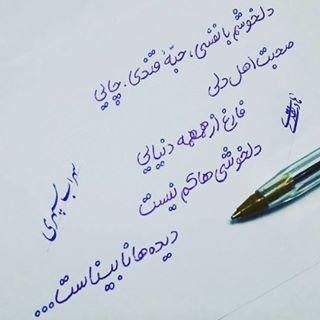 دلخوشم با نفسی، حبّهٔ قندی، چایی
صحبت اهل دلی
فارغ از همهمه دنیایی
دلخوشی ها کم نیست
دیده ها نابیناست...
سهراب سپهری